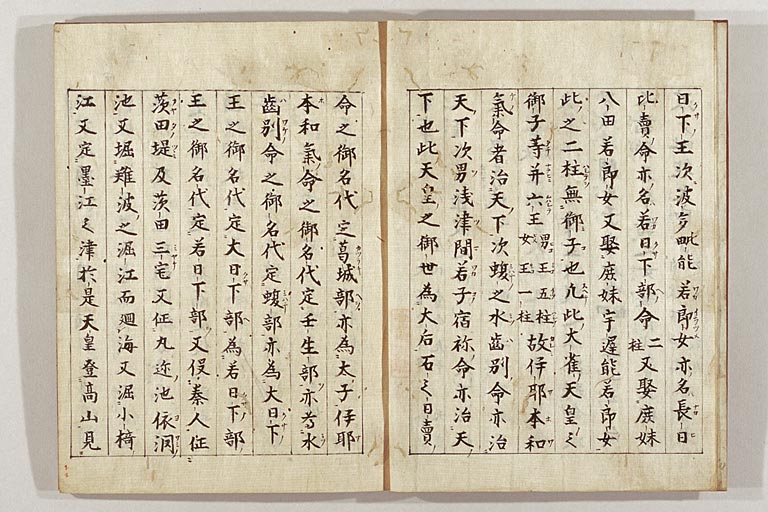 日下王次波多毗能若郎女亦名長日
比賣命亦名若日下部命二柱又娶庶妹
八田若郎女又娶庶妹宇遅能若郎女
此之二柱無御子也凡此大雀天皇之
御子等并六王男王五柱女王一柱故伊耶本和
氣命者治天下次蝮之水齒別命亦治
天下次男浅津間若子宿祢命亦治天
下也此天皇之御世為大后石之日賣
命之御名代定葛城部亦為太子伊耶
本和氣命之御名代定壬生部亦為水
齒別命之御名代定蝮部亦為大日下
王之御名代定大日下部為若日下部
王之御名代定若日下部又役秦人作
茨田堤及茨田三宅又作丸迩池依洞
池又堀難波之堀江而廻海又堀小椅
江又定墨江之津於是天皇登高山見